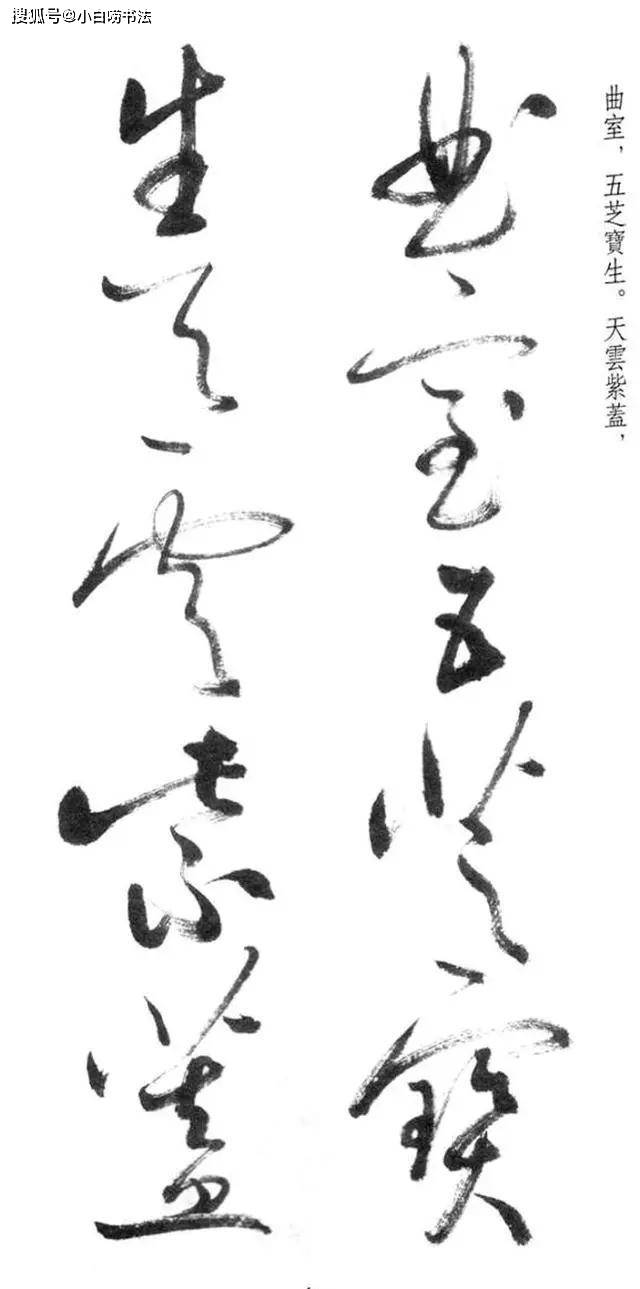 搜狐号@小白唠书法
曲室，五芝寶生。天雲紫蓋，
曲室五芝寶
生天雲紫蓋